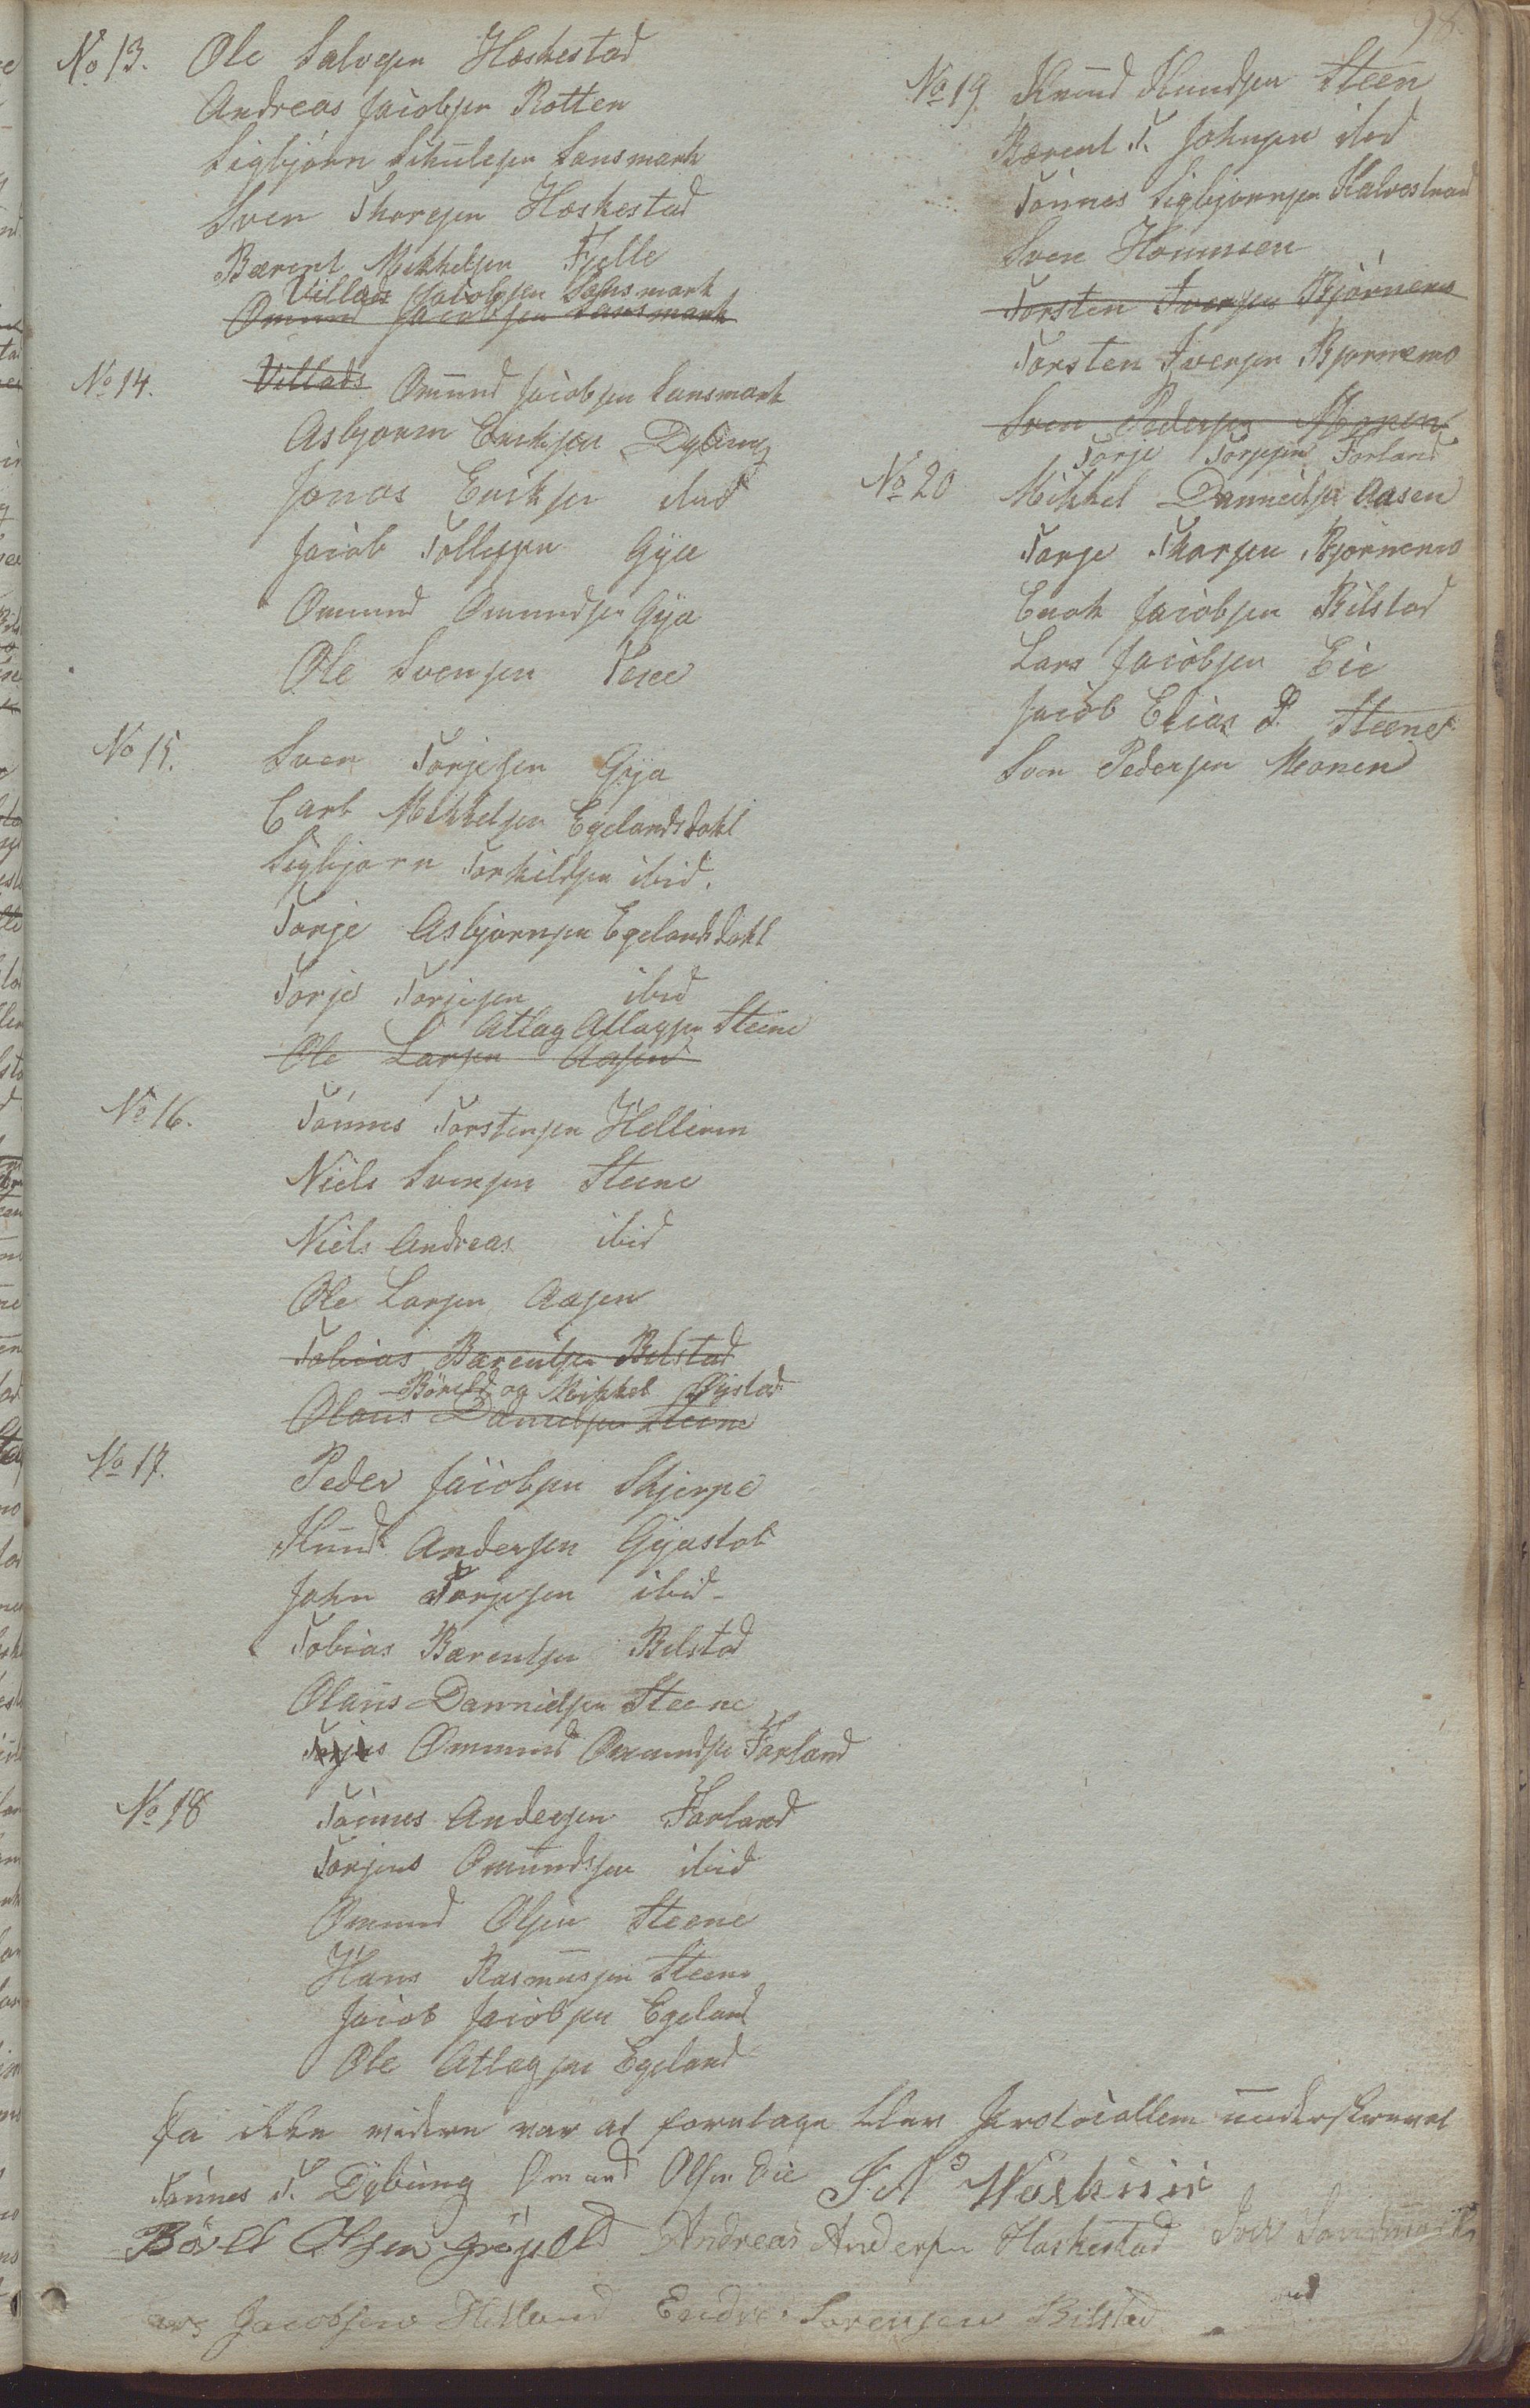 98.
No 13. Ole Salvesen Heskestad
Andreas Jacobsen Rotten
Sigbjørn Schulesen Sansmark
Sven Thoresen Heskestad
Berent Mikkelsen Fjelle
Villads Jacobsen Sansmark
Omund Jacobsen Sansmark
No 14. Villads Omund Jacobsen Sansmark
Asbjorn Enoksen Dybing
Jonas Enoksen ibid
Jacob Tollefsen Gya
Omund Omundsen Gya
Ole Svensen
No 15. Sven Torjesen Gya
Carl Mikkelsen Egelandsdahl
Sigbjørn Torkildsen ibid.
Torje Asbjørnsen Egelandsdahl
Torje Torjesen ibid
Atlag Atlagsen Steene
Ole Larsen Aasen
No 16. Tønnes Torstensen Helleren
Niels Svensen Steene
Niels Andreas ibid
Ole Larsen Aasen
Tobias Berentsen Bilstad
og Mikkel
Olaus Danielsen Steene
No 17. Peder Jacobsen Skjerpe
Knud Andersen Gyastøl
John Torjesen ibid
Tobias Berentsen Bilstad
Olaus Dannielsen Steene
Omund Omundsen Førland
No 18 Tønnes Andersen Førland
Torjus Omundsen ibid
Omund Olsen Steene
Hans Rasmussen Steene
Jacob Jacobsen Egeland
Ole Atlagsen Egeland
No 19. Knud Knudsen Steen
Berent T. Johnsen ibid
Tønnes Sigbjørnsen Kalvestrand
Sven Hommen
Torsten Iversen Bjørnemo
Torsten Iversen Bjørnemo
Sven Pedersen Monen
Torje Torjesen Førland
No 20 Mikkel Danneilsen Aasen
Torje Thorsen Bjørnemo
Enok Jacobsen Bilstad
Lars Jacobsen Eie
Jacob Elias P. Steene
Sven Pedersen Monen
Da ikke videre var at foretage blev Protocollen underskrevet
Tønnes T. Dybing Omund Olsen Eie
Olsen Andreas Andersen Heskestad
Jacobsen Helland Endre Sørensen Bilstad